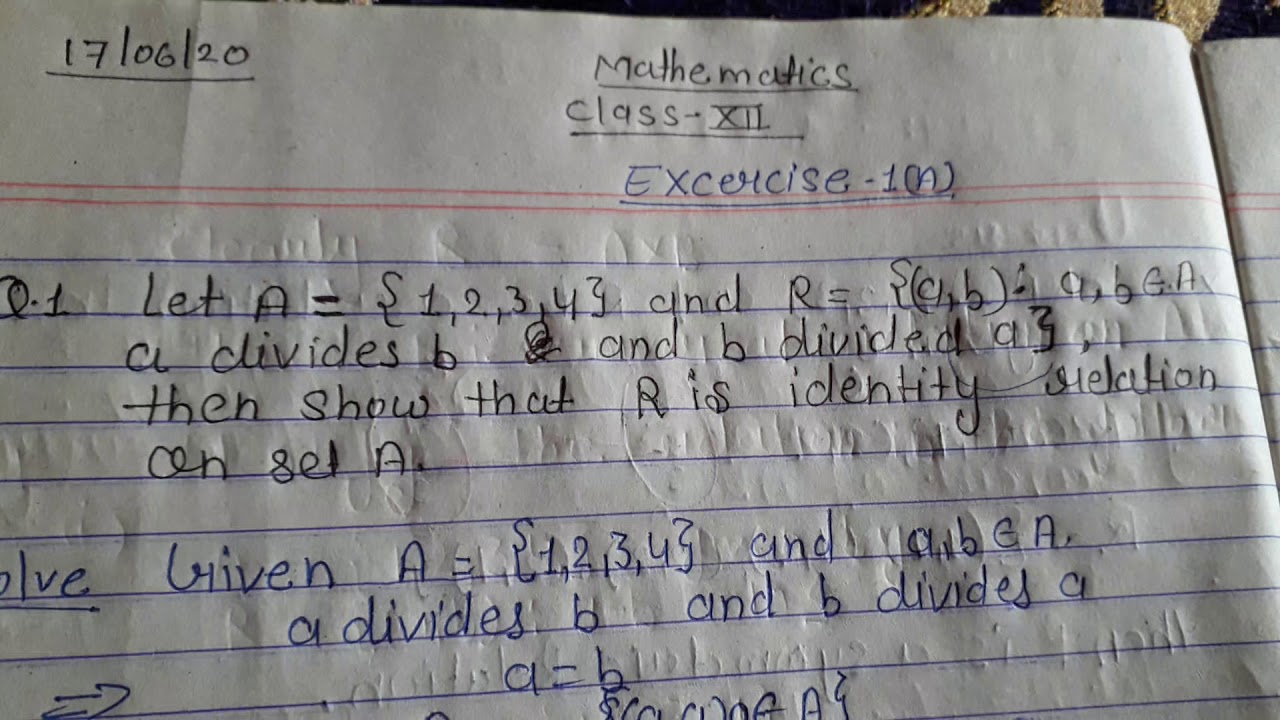 17/06/20
Mathematics
Class-XII
Excercise-1(A)
Q.1 Let A = {1,2,3,4} and R = {(a,b); a,b∈A
a divides b and b divided a},
then show that R is identity relation
on set A.
olve Given A = {1,2,3,4} and a,b∈A.
a divides b and b divides a
⇒ a=b